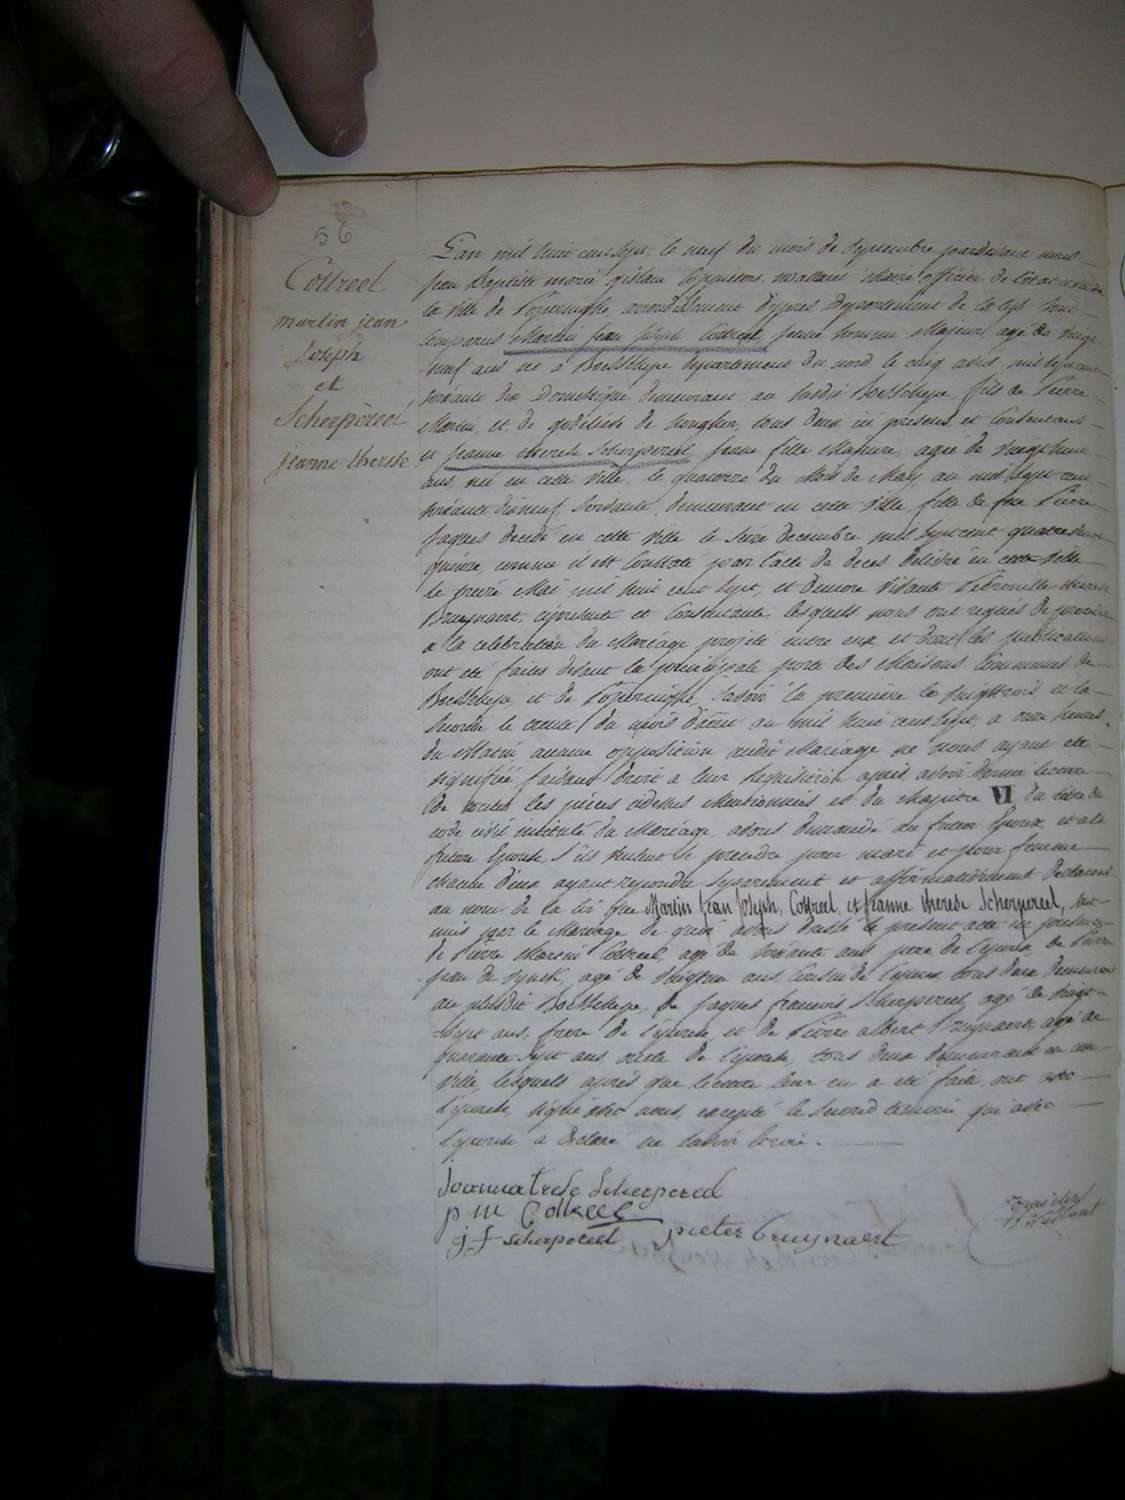 56
Cottreel
martin jean
Joseph
et
Scherpereel
jeanne therese
L'an mil huit cent sept, le neuf du mois de Septembre pardevant nous
jean Baptiste marie gislain maire officier de l'état civil de
la ville de Poperinghe arrondissement d'ypres Departement de la lys sont
comparus Martin jean joseph Cottreel, jeune homme Majeur, agé de vingt
neuf ans né à Boeschepe departement du nord le cinq avril mil sept cent
Domestique demeurant au susdit Boeschepe, fils de Pierre
Martin et de godelieve de tous deux ici presens et Consentans
et jeanne therese Scherpereel jeune fille Majeure, agée de vingt huit
ans née en cette ville, le quatorze du Mois de May an mil sept cent
soixante dixneuf, demeurant en cette ville, fille de feu Pierre
jaques decedé en cette ville le seize decembre mil sept cent quatre vingt
quinze, comme il est constaté par l'acte de deces delivré en cette ville
le treize Mai mil huit cent sept, et encore vivante Petronille therese
Bruynaert, ci presente et Consentante, lesquels nous ont requis de proceder
a la celebration du Mariage projeté entre eux et dont les publications
ont été faites devant la principale porte des Maisons Communes de
Boeschepe et de Poperinghe, savoir la premiere le vingt trois et la
seconde le trente du mois d'août an mil huit cent sept, a onze heures
du Matin, aucune opposition audit Mariage ne nous ayant été
signifiée, faisant droit a leur requisition, après avoir donné lecture
de toutes les pièces cidessus Mentionnées et du chapitre VI du titre du
code civil intitulé du Mariage, avons demandé au futur Epoux et a la
future Epouse, s'ils veulent se prendre pour mari et pour femme
chacun d'eux ayant repondu separement et affirmativement Declarons
au nom de la loi que Martin Jean Joseph, Cottreel, et Jeanne therese Scherpereel, sont
unis par le Mariage de quoi avons dressé le present acte en presence
de Pierre Martin Cottreel, agé de soixante ans pere de l'epoux, de Pierre
jean de agé de ans Cousin de l'epoux tous deux demeurans
au plusdit Boeschepe, de jaques francois Scherpereel, agé de vingt
sept ans, frere de l'epouse, et de Pierre albert Bruynaert, agé de
quarante sept ans oncle de l'epouse, tous deux demeurant en cette
ville, lesquels après que lecture leur en a été faite, ont avec
l'epouse, signé avec nous, excepté le second temoin qui avec
l'epoux a declaré ne savoir Ecrire.
Joanna trese Scherpereel
p m Cottreel
j f scherpereel pieter bruynaert